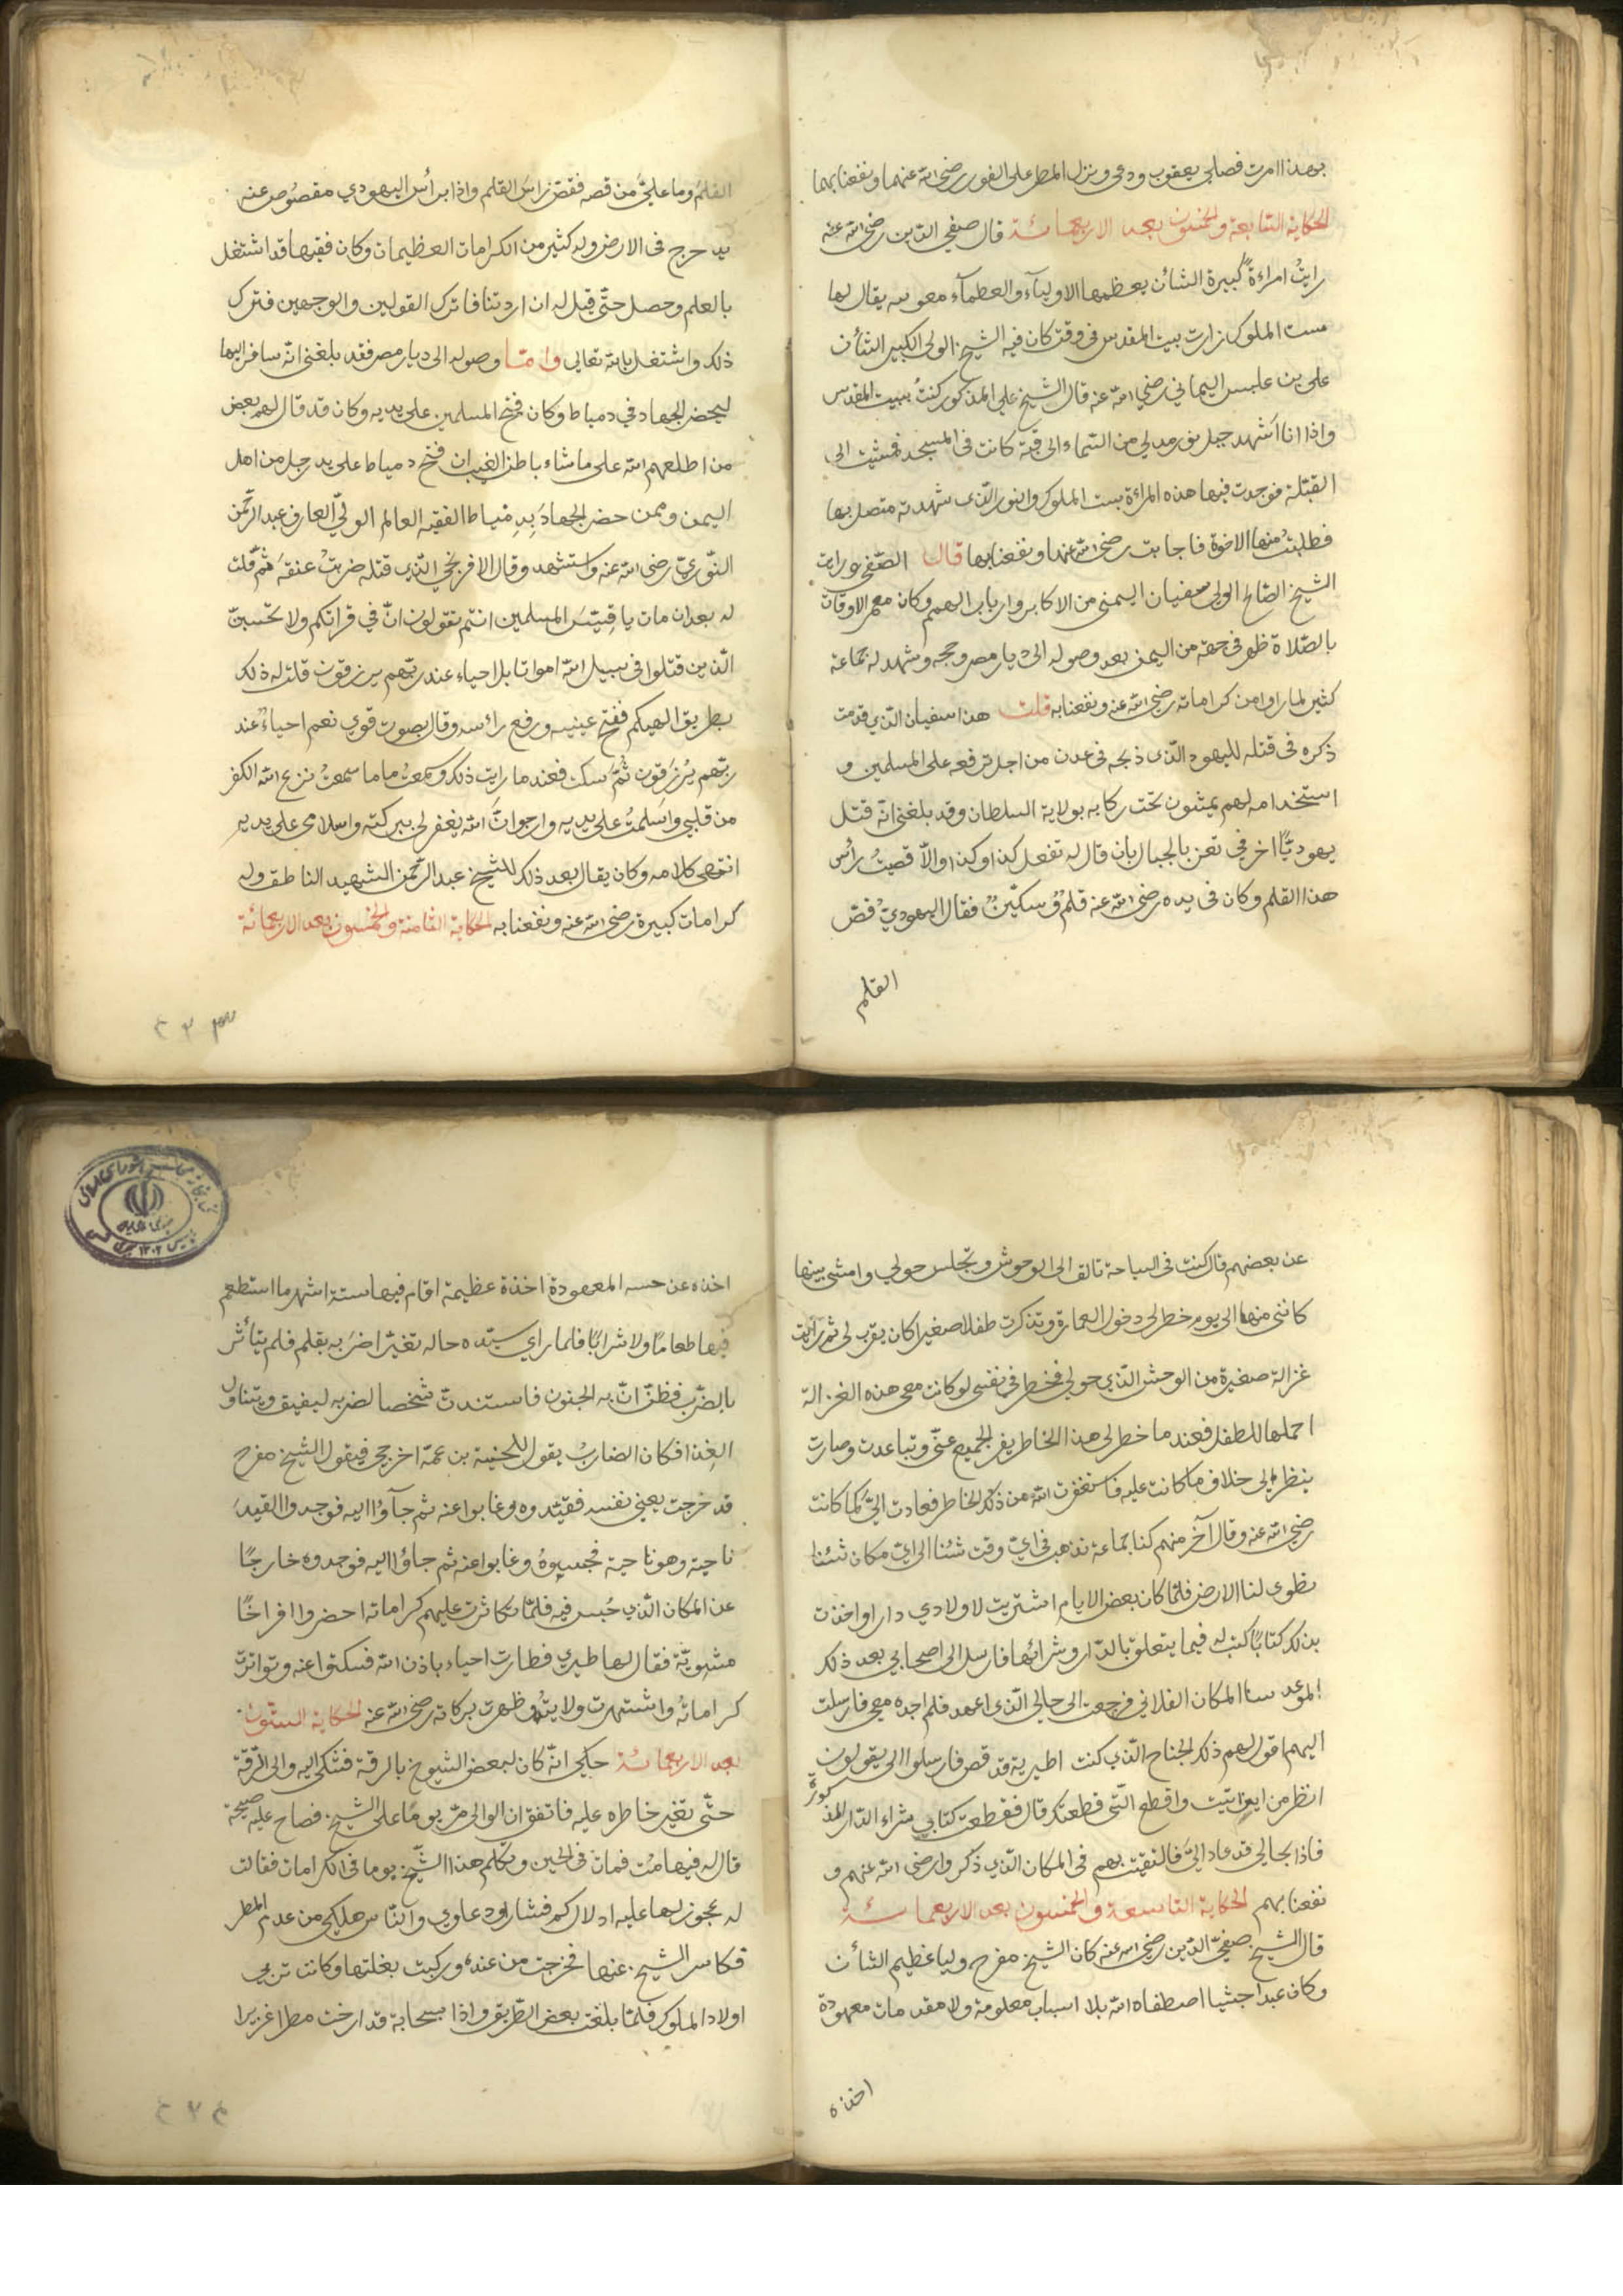 بهذا امرت فصلى يعقوب ودعى ونزل المطر على الفور رضى الله عنهما ونفعنا بهما
الحكاية السابعة والخمسون بعد الاربعمائة قال صفي الدين رضى الله عنه
رايتُ امراءةً كبيرة الشأن يعظمها الاولياء والعظماء يقال لها
ست الملوك زارت بيت المقدس فى وقت كان فيه الشيخ الولى الكبير الشأن
على بن علبس اليماني رضي الله عنه قال الشيخ على المذكور كنتُ ببيت المقدس
واذا انا اشهد حبل نور مدلي من السماء الى قبة كانت فى المسجد فمشيت الى
القبتلة فوجدت فيها هذه المراءة ست الملوك والنور الذى شهدته متصل بها
فطلبتُ منها الاخوة فاجابت رضى الله عنها ونفعنا بها قال الصفي ورايت
الشيخ الصالح الولى سفيان اليمنى من الاكابر وارباب الهمم وكان معمر الاوقات
بالصلاة ظهر فى حقه من اليمن بعد وصوله الى ديار مصر وحجه وشهد له جماعة
كثير لما راوا من كراماته رضى الله عنه ونفعنا به قلت هذا سفيان الذي قدمت
ذكره فى قتله لليهود الذى ذبحه فى عدن من اجل ترفعه على المسلمين و
استخدامه لهم يمشون تحت ركابه بولاية السلطان وقد بلغنى انه قتل
يهوديًا اخر في تعز بالجبال بان قال له تفعل كذا وكذا والا قصيتُ رأس
هذا القلم وكان فى يده رضى الله عنه قلمٌ وسكينٌ فقال اليهوديُ قص
القلم
القلمُ وما عليَّ من قصه فقص رأسَ القلم واذا برأس اليهودي مقصُوص عنه
يدحرج فى الارض وله كثير من الكرامات العظيمات وكان فقيها قد اشتغل
بالعلم وحصل حتى قيل له ان اردتنا فاترك القولين والوجهين فترك
ذلك واشتغل بالله تعالى واما وصوله الى ديار مصر فقد بلغنى انه سافر اليها
ليحضر الجهاد في دمياط وكان فتح المسلمين على يديه وكان قد قال لهم بعض
من اطلعهم الله على ما شاء باطن الغيب ان فتح دمياط على يد رجل من اهل
اليمن وممن حضر الجهادَ بدمياط الفقيه العالم الولي العارف عبد الرحمن
النوري رضى الله عنه واستشهد وقال الافرنجي الذى قتله ضربتُ عنقه ثم قلت
له بعد ان مات يا قسيس المسلمين انتم تقولون ان في قرانكم ولا تحسبن
الذين قتلوا فى سبيل الله امواتا بل احياء عند ربهم يرزقون قلت له ذلك
بطريق الهيكم ففتح عينيه ورفع رأسه وقال بصوت قوي نعم احياءٌ عند
ربهم يُرزَقون ثم سكت فعند ما رايت ذلك وسمعتُ ما ما سمعتُ نزع الله الكفر
من قلبي واسلمتُ على يديه وارجو ان الله يغفر لى ببركته واسلامى على يديه
انتهى كلامه وكان يقال بعد ذلك للشيخ عبد الرحمن الشهيد الناطق وله
كرامات كبيرة رضى الله عنه ونفعنا به الحكاية الثامنة والخمسون بعد الاربعمائة
عن بعضهم قال كنت فى السياحة تالف الى الوحوش وتجلس حولي وامشي بينها
كانني منها الى يوم خطر لى دخول العمارة وتذكرت طفلا صغيرا كان يقرب لى ثم رأيت
غزالة صغيرة من الوحش الذي حولى فخطر فى نفسى لو كانت معى هذه الغزالة
احملها للطفل فعند ما خطر لى هذا الخاطر يفر الجميع عني وتباعدت وصارت
ينظر الي خلاف ما كانت عليه فاستغفرت الله من ذلك الخاطر فعادت الى كما كانت
رضى الله عنه وقال آخر منهم كنا جماعة نذهب فى اي وقت شئنا الى اي مكان شئنا
يطوى لنا الارض فلما كان بعض الايام اشتريت لاولادي دارا واخذت
بذلك كتابًا كتب له فيما يتعلق بالدار وشرائها فارسل الى اصحابى بعد ذلك
الموعد سا المكان الفلاني فرجعت الى حالي الذى اعهد فلم اجده معى فارسلت
اليهم اقول لهم ذلك الجناح الذي كنت اطير به قد قص فارسلوا الى يقولون
انظر من اين اتيت واقطع التى قطعتك قال فقطعت كتابي شراء الدار المذ
كورة
فاذا بحالي قد عاد الىَّ فالتقيت بهم فى المكان الذي ذكروا رضى الله عنهم و
نفعنا بهم الحكاية التاسعة والخمسون بعد الاربعمائة
قال الشيخ صفي الدين رضي الله عنه كان الشيخ مفرج وليا عظيم الشأن
وكان عبدا حبشيا اصطفاه الله بلا اسباب معلومة ولا مقدمات معهودة
اخذه
اخذه عن حسه المعهودة اخذة عظيمة اقام فيها ستة اشهر ما استطعم
فيها طعامًا ولا شرابًا فلما راي سيّده حاله تغيّر اضرَ به بقلم فلم يتأثر
بالضرب فظن ان به الجنون فاستندت شخصا لضربه ليفيق ويتناول
الغذا فكان الضاربُ يقول للجنية بن عمه اخرجي فيقول الشيخ مفرج
قد خرجت يعني نفسه فقيّدوه وغابوا عنه ثم جآؤا اليه فوجدوا القيدَ
ناحية وهو ناحية فحبسوهُ وغابوا عنه ثم جاؤا اليه فوجدوه خارجًا
عن المكان الذي حُبس فيه فلما تكاثرت عليهم كراماته احضروا افراخًا
مشويّة فقال لها طيري فطارت احياء باذن الله فسكتوا عنه وتواترت
كراماتُه واشتهرت ولايتُه وظهرت بركاته رضى الله عنه الحكاية الستون
بعد الاربعمائة حكي انه كان لبعض الشيوخ بالرقة فشكى اليه والى الرقة
حتى تغير خاطره عليه فاتفق ان الوالى مر يومًا على الشيخ فصاح عليه صيحة
قال له فيها مُت فمات فى الحين وتكلم هذا الشيخ يوما فى الكرامات فقالت
له عجوز لها عليه ادلال كم فشار ودعاوى والناس هلكى من عدم المطر
فكاسر الشيخ عنها فخرجت من عنده وركبت بغلتها وكانت تربى
اولاد الملوك فلما بلغت بعض الطريق واذا بسحابة قد ارخت مطرا غزيرا